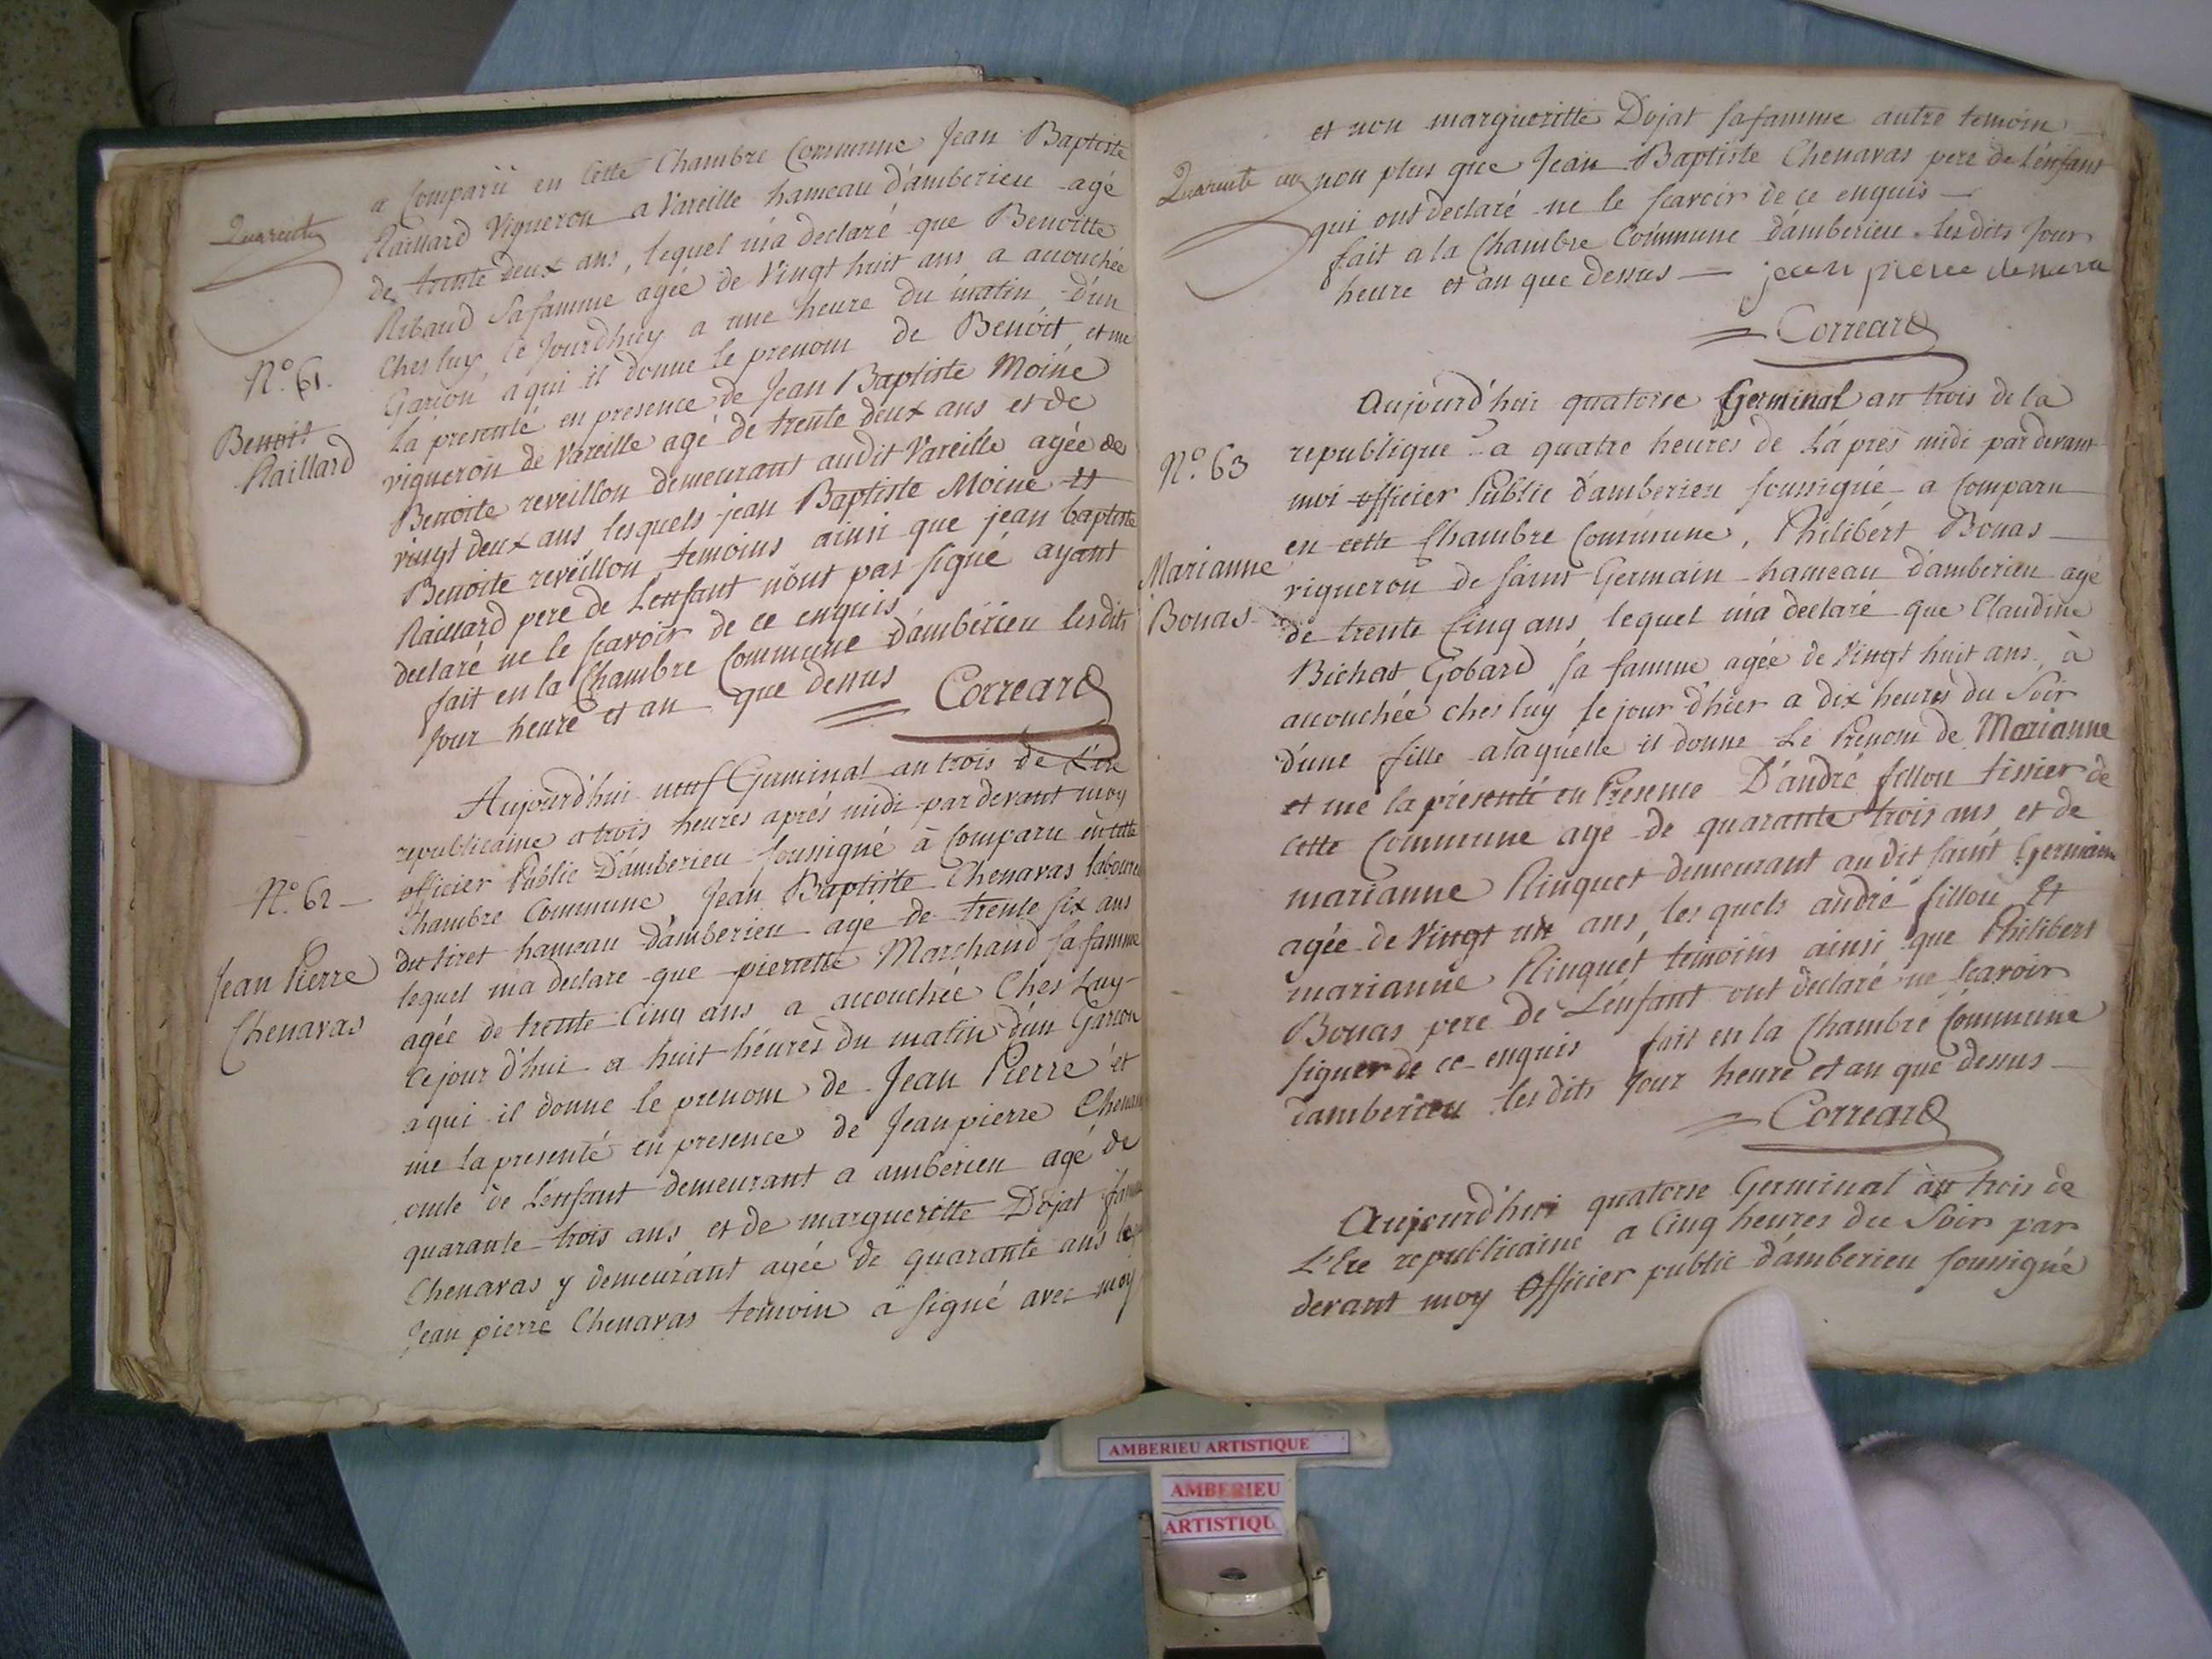 Quarente
a Comparu en Cette Chambre Commune Jean Baptiste
Raillard Vigneron a Vareille hameau d'amberieu agé
de trente deux ans, lequel m'a declaré que Benoitte
Ribaud Sa famme agée de Vingt huit ans a accouchée
Ches luy, Ce Jourdhuy a une heure du matin d'un
Garcon a qui il donne le prenom de Benoit et me
la presenté en presence de Jean Baptiste Moine
vigneron de Vareille agé de trente deux ans et de
Benoite reveillon demeurant audit Vareille agée de
vingt deux ans lesquels jean Baptiste Moine et
Benoite reveillon temoins ainsi que jean baptiste
Raillard pere de Lenfant n'ont pas signé ayant
declaré ne le scavoir de ce enquis
fait en la Chambre Commune d'amberieu lesdits
Jour heure et an que dessus
Correard
N.º 61.
Benoit
Raillard
Aujourd'hui neuf Germinal an trois de L'ere
republicaine a trois heures après midi par devant moy
officier Public D'amberieu soussigné à Comparu en cette
Chambre Commune Jean Baptiste Chenavas
du tiret hameau d'amberieu agé de trente six ans
lequel m'a declare que pierrette Marchand sa famme
agée de trente Cinq ans a accouchée Ches Luy
Ce jour d'hui a huit heures du matin d'un Garcon
a qui il donne le prenom de Jean Pierre et
me la presenté en presence de Jean pierre
oncle de Lenfant demeurant a amberieu agé de
quarante trois ans et de marguerite Dojat
Chenavas y demeurant agée de quarante ans
Jean pierre Chenavas temoin a signé avec moy
N.º 62
Jean Pierre
Chenavas
Quarente un
et non margueritte Dojat sa famme autre temoin
non plus que Jean Baptiste Chenavas pere de L'enfant
qui ont declaré ne le scavoir de ce enquis
fait a la Chambre Commune d'amberieu lesdits Jour
heure et an que Dessus jean piere
Correard
Aujourd'hui quatorse Germinal an trois de la
republique a quatre heures de L'apres midi par devant
moi officier Public d'amberieu soussigné a Comparu
en cette Chambre Commune, Philibert Bonas
vigneron de saint Germain hameau d'amberieu agé
de trente Cinq ans lequel m'a declaré que Claudine
Bichat Gobard sa famme agée de Vingt huit ans, à
accouchée ches luy le jour d'hier a dix heures du Soir
d'une fille a laquelle il donne Le Prenom de Marianne
et me la présenté en Presence D'andré fillon tissier de
cette Commune agé de quarante trois ans et de
marianne Rinquet demeurant au dit saint Germain
agée de Vingt un ans, les quels andré fillon Et
marianne Rinquet temoins ainsi que Philibert
Bonas pere de L'enfant ont declaré ne scavoir
signer de ce enquis fait en la Chambre Commune
damberieu lesdits Jour heure et an que dessus
Correard
N.º 63
Marianne
Bonas
Aujourd'hui quatorse Germinal an trois de
L'Ere republicaine a Cinq heures du Soir par
devant moy Officier public d'amberieu soussigné
AMBERIEU ARTISTIQUE
AMBERIEU
ARTISTIQU